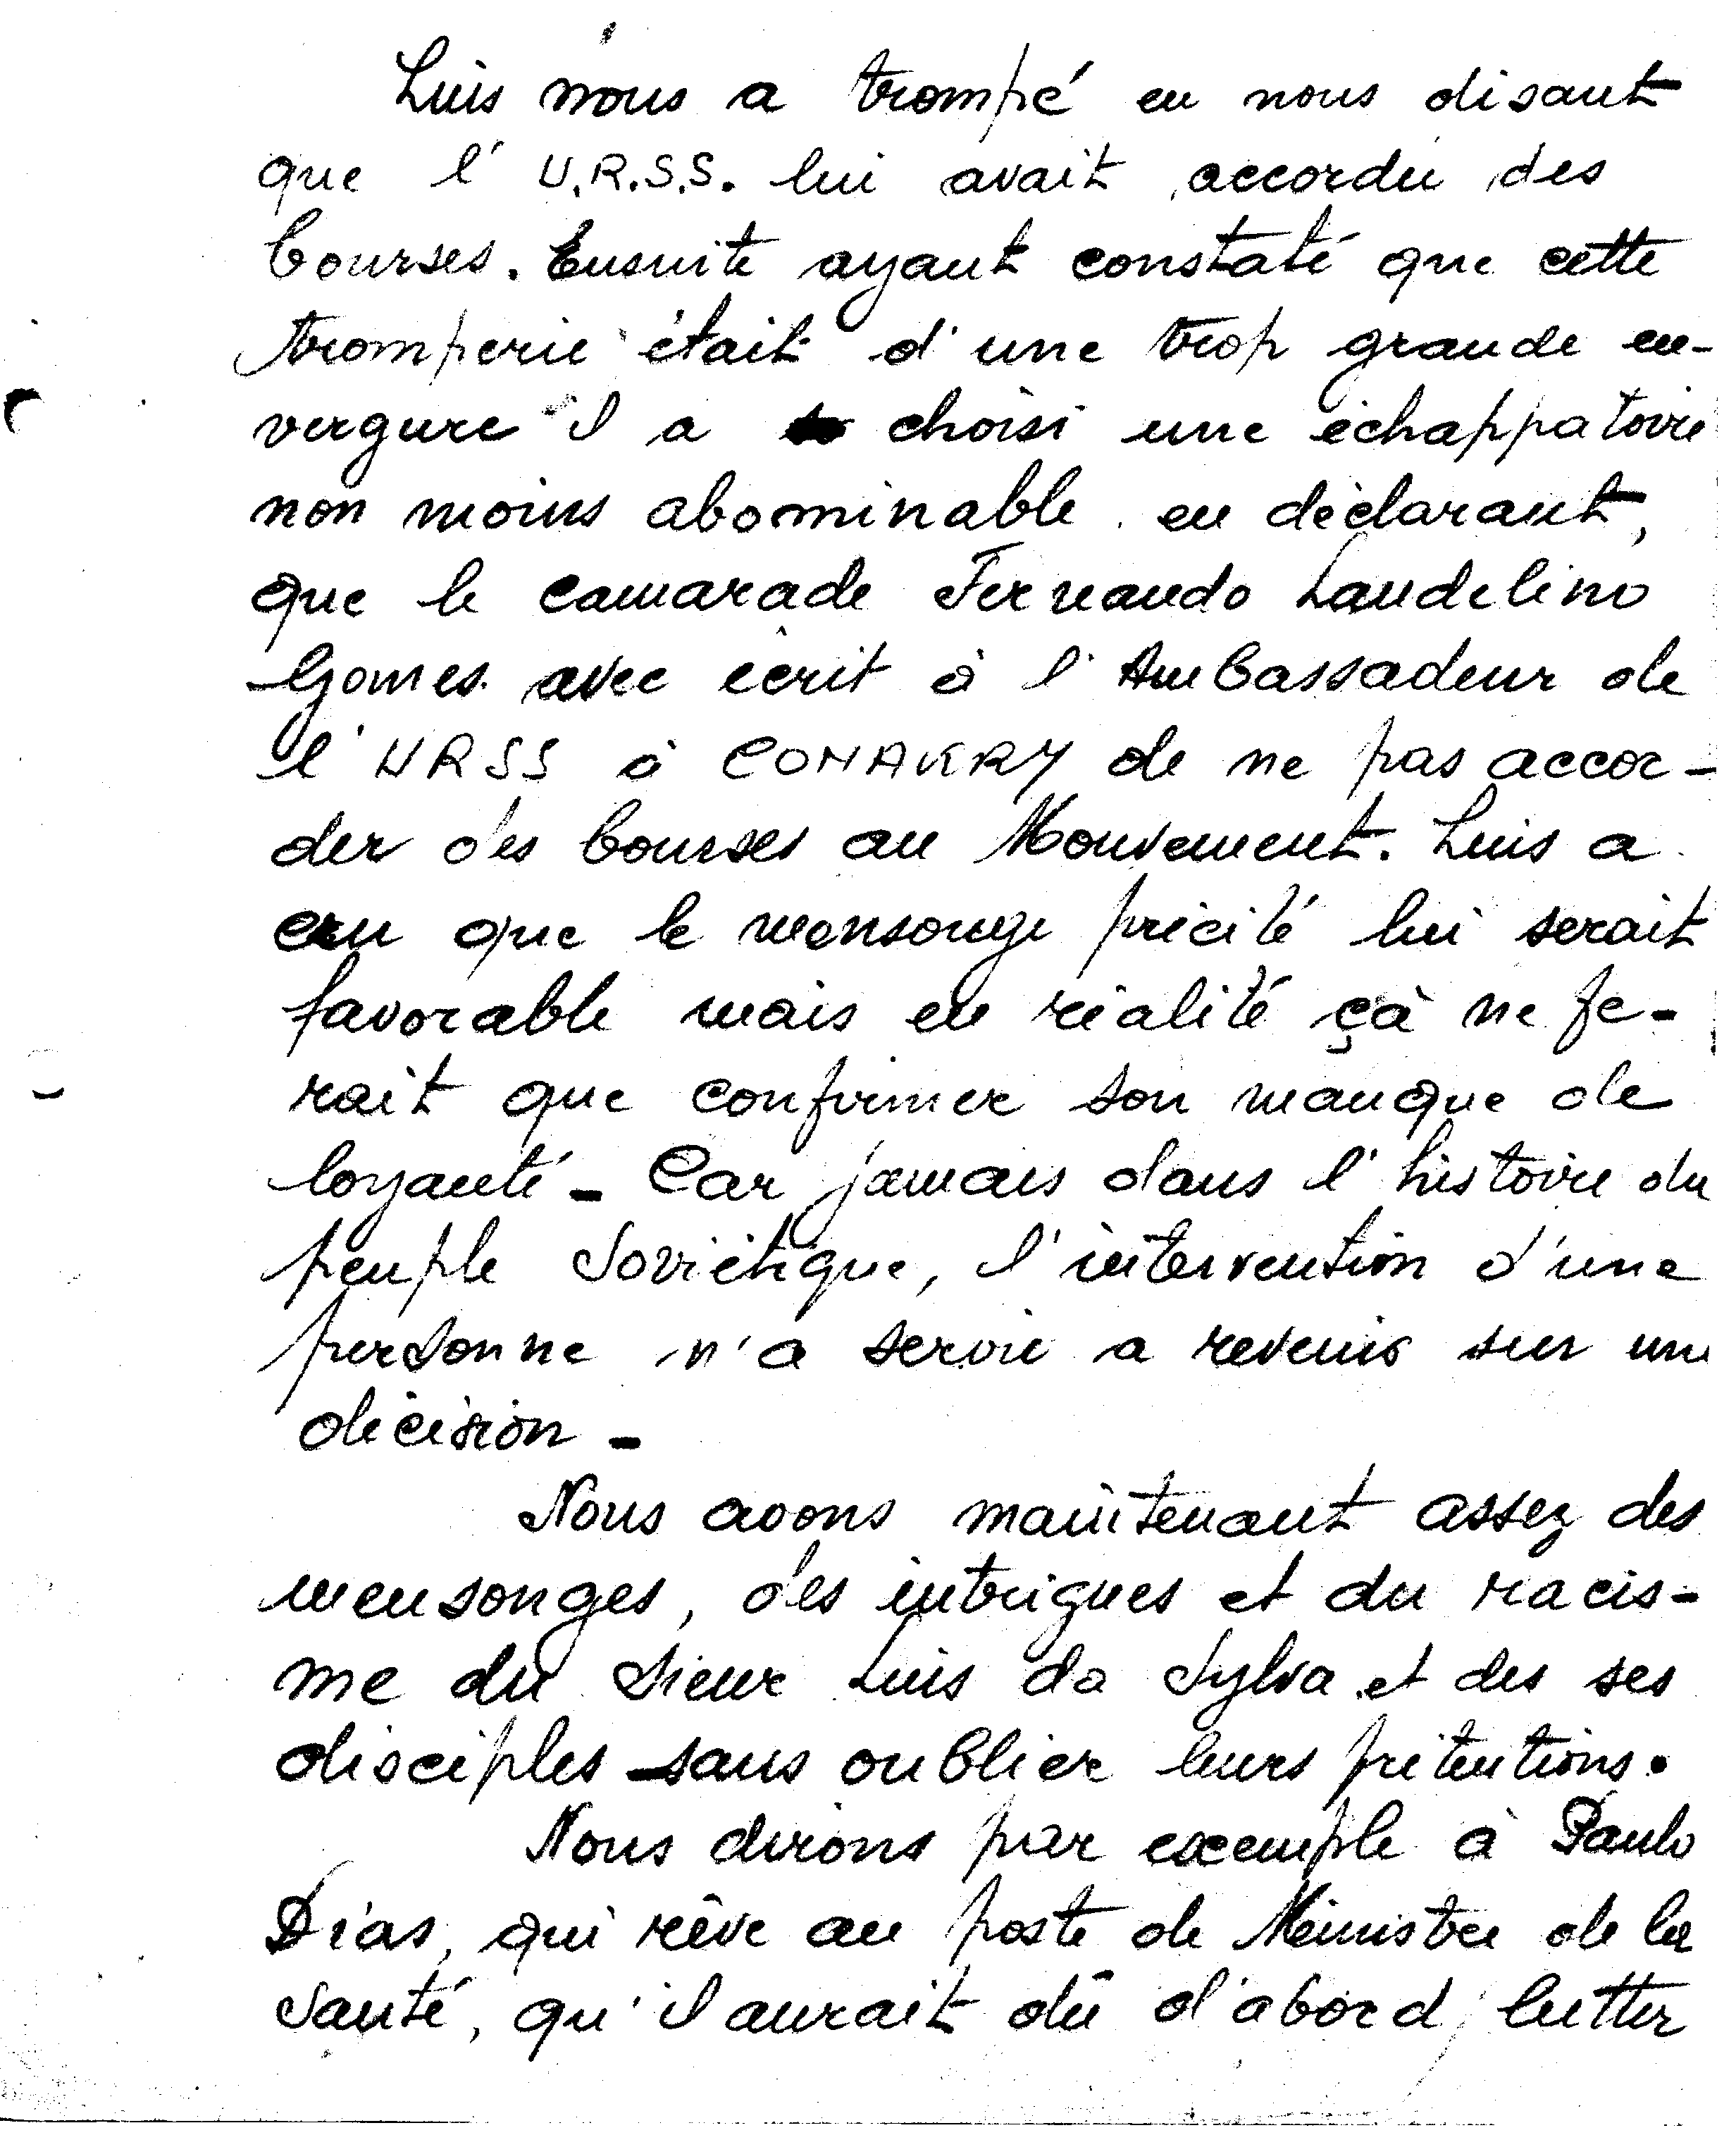 Luis nous a trompé en nous disant
que l'U.R.S.S. lui avait accordé des
bourses. Ensuite ayant constaté que cette
tromperie était d'une trop grande en-
vergure il a choisi une échappatoire
non moins abominable en déclarant,
que le camarade Fernando Laudelino
Gomes avec écrit à l'Ambassadeur de
l'URSS à CONAKRY de ne pas accor-
der des bourses au Mouvement. Luis a
cru que le mensonge précité lui serait
favorable mais en réalité çà ne fe-
rait que confirmer son manque de
loyauté - Car jamais dans l'histoire du
peuple Soviétique, l'intervention d'une
personne n'a servie a revenir sur une
décision -
Nous avons maintenant assez des
mensonges, des intrigues et du racis-
me du sieur Luis da Sylva et des ses
disciples sans oublier leurs prétentions.
Nous dirons par exemple à Paulo
Dias, qui rêve au poste de Ministre de la
Santé, qu'il aurait dû d'abord lutter